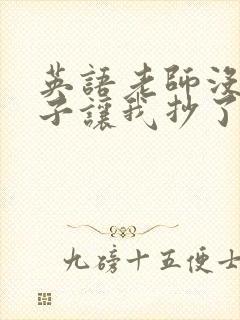 英語老師沒
子讓我抄了
九磅十五便士